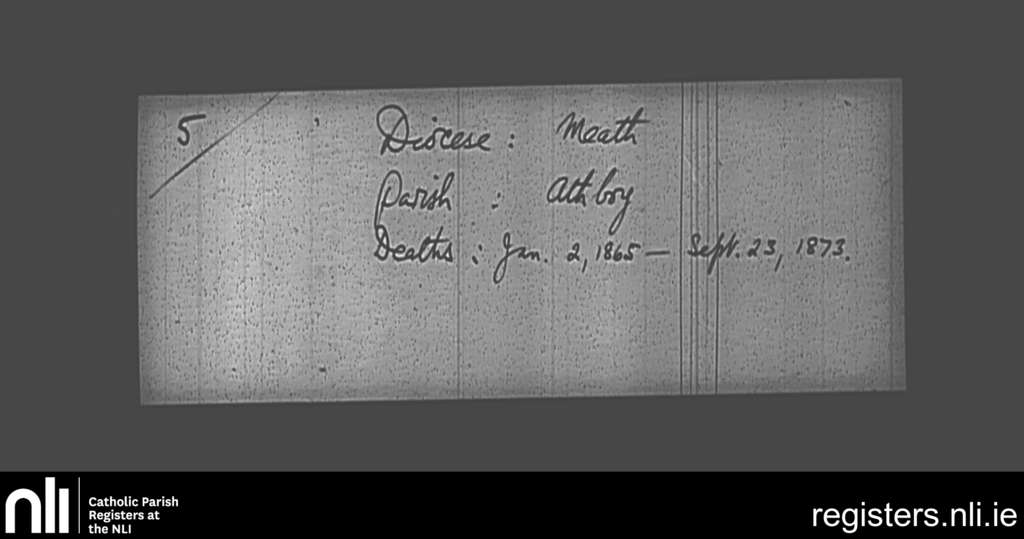 5
Diocese : Meath
Parish : Athboy
Deaths : Jan. 2, 1865 — Sept. 23, 1873.
nli
Catholic Parish
Registers at
the NLI
registers.nli.ie